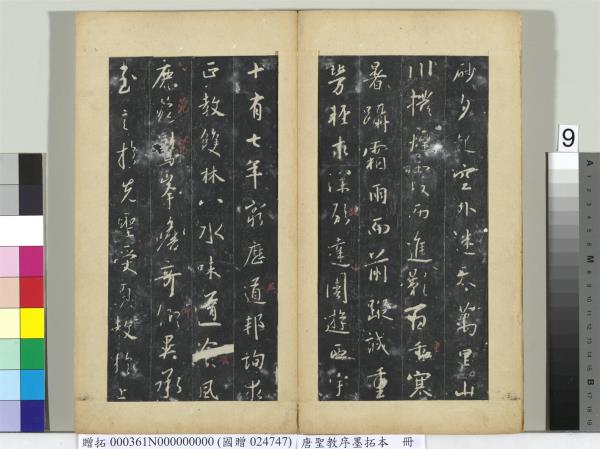 砂夕起空外迷天萬里山
川撥煙霞而進影百重寒
暑躡霜雨而前蹤誠重
勞輕求深願達周遊西宇
十有七年窮歷道邦詢求
正教雙林八水味道飡風
鹿菀鷲峯瞻奇仰異承
至言於先聖受真教於上
贈拓 000361N000000000 (國贈 024747) 唐聖教序墨拓本 冊
9
A
1
2
3
4
5
6
M
8
9
10
11
12
13
14
15
B
17
18
19